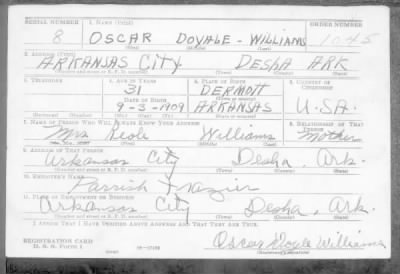 SERIAL NUMBER 1. NAME (Print) ORDER NUMBER
8 OSCAR DOYALE - WILLIAMS 1045
(First) (Middle) (Last)
2. ADDRESS (Print)
ARKANSAS CITY DESHA ARK
(Number and street or R. F. D. number) (Town) (County) (State)
3. TELEPHONE 4. AGE IN YEARS 5. PLACE OF BIRTH 6. COUNTRY OF CITIZENSHIP
31 DERMOTT
DATE OF BIRTH (Town or county)
9-3-1909 ARKANSAS U.S.A.
(Exchange) (Number) (Mo.) (Day) (Yr.) (State or country)
7. NAME OF PERSON WHO WILL ALWAYS KNOW YOUR ADDRESS 8. RELATIONSHIP OF THAT PERSON
Mrs Williams Mother
(Mr., Mrs., Miss) (First) (Middle) (Last)
9. ADDRESS OF THAT PERSON
Arkansas City Desha, Ark.
(Number and street or R. F. D. number) (Town) (County) (State)
10. EMPLOYER'S NAME
Parrish Frazier
11. PLACE OF EMPLOYMENT OR BUSINESS
Arkansas City Desha, Ark.
(Number and street or R. F. D. number) (Town) (County) (State)
I AFFIRM THAT I HAVE VERIFIED ABOVE ANSWERS AND THAT THEY ARE TRUE.
REGISTRATION CARD
D. S. S. Form 1 16-17105 Oscar Doyle Williams
(Registrant's signature)